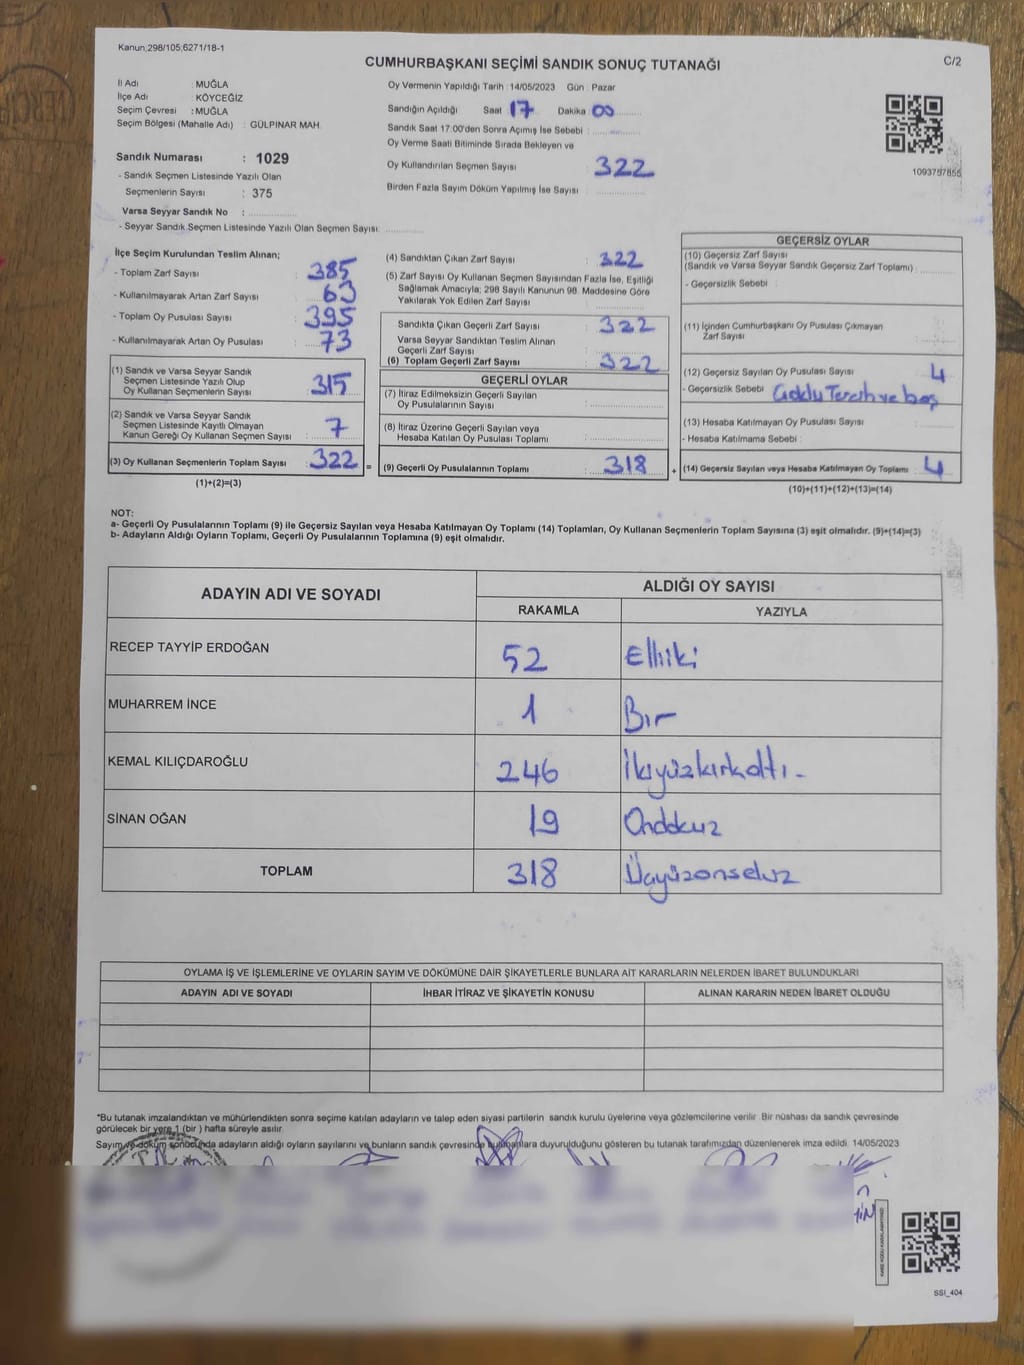 Kanun;298/105;6271/18-1
CUMHURBAŞKANI SEÇİMİ SANDIK SONUÇ TUTANAĞI
C/2
İl Adı : MUĞLA
İlçe Adı : KÖYCEĞİZ
Seçim Çevresi : MUĞLA
Seçim Bölgesi (Mahalle Adı) : GÜLPINAR MAH.
Sandık Numarası : 1029
- Sandık Seçmen Listesinde Yazılı Olan
Seçmenlerin Sayısı : 375
Varsa Seyyar Sandık No :
- Seyyar Sandık Seçmen Listesinde Yazılı Olan Seçmen Sayısı:
Oy Vermenin Yapıldığı Tarih : 14/05/2023 Gün : Pazar
Sandığın Açıldığı Saat 17 Dakika 00
Sandık Saat 17:00'den Sonra Açımış İse Sebebi :
Oy Verme Saati Bitiminde Sırada Bekleyen ve
Oy Kullandırılan Seçmen Sayısı : 322
Birden Fazla Sayım Döküm Yapılmış İse Sayısı :
1093757855
İlçe Seçim Kurulundan Teslim Alınan;
- Toplam Zarf Sayısı : 385
- Kullanılmayarak Artan Zarf Sayısı : 63
- Toplam Oy Pusulası Sayısı : 395
- Kullanılmayarak Artan Oy Pusulası : 73
(1) Sandık ve Varsa Seyyar Sandık
Seçmen Listesinde Yazılı Olup
Oy Kullanan Seçmenlerin Sayısı : 315
(2) Sandık ve Varsa Seyyar Sandık
Seçmen Listesinde Kayıtlı Olmayan
Kanun Gereği Oy Kullanan Seçmen Sayısı : 7
(3) Oy Kullanan Seçmenlerin Toplam Sayısı : 322
(1)+(2)=(3)
(4) Sandıktan Çıkan Zarf Sayısı : 322
(5) Zarf Sayısı Oy Kullanan Seçmen Sayısından Fazla İse, Eşitliği
Sağlamak Amacıyla; 298 Sayılı Kanunun 98. Maddesine Göre
Yakılarak Yok Edilen Zarf Sayısı :
Sandıkta Çıkan Geçerli Zarf Sayısı : 322
Varsa Seyyar Sandıktan Teslim Alınan
Geçerli Zarf Sayısı :
(6) Toplam Geçerli Zarf Sayısı : 322
GEÇERLİ OYLAR
(7) İtiraz Edilmeksizin Geçerli Sayılan
Oy Pusulalarının Sayısı :
(8) İtiraz Üzerine Geçerli Sayılan veya
Hesaba Katılan Oy Pusulası Toplamı :
= (9) Geçerli Oy Pusulalarının Toplamı : 318
GEÇERSİZ OYLAR
(10) Geçersiz Zarf Sayısı
(Sandık ve Varsa Seyyar Sandık Geçersiz Zarf Toplamı) :
- Geçersizlik Sebebi :
(11) İçinden Cumhurbaşkanı Oy Pusulası Çıkmayan
Zarf Sayısı :
(12) Geçersiz Sayılan Oy Pusulası Sayısı : 4
- Geçersizlik Sebebi : Çoklu Tercih ve boş
(13) Hesaba Katılmayan Oy Pusulası Sayısı :
- Hesaba Katılmama Sebebi :
+ (14) Geçersiz Sayılan veya Hesaba Katılmayan Oy Toplamı : 4
(10)+(11)+(12)+(13)=(14)
NOT:
a- Geçerli Oy Pusulalarının Toplamı (9) ile Geçersiz Sayılan veya Hesaba Katılmayan Oy Toplamı (14) Toplamları, Oy Kullanan Seçmenlerin Toplam Sayısına (3) eşit olmalıdır. (9)+(14)=(3)
b- Adayların Aldığı Oyların Toplamı, Geçerli Oy Pusulalarının Toplamına (9) eşit olmalıdır.
ADAYIN ADI VE SOYADI
ALDIĞI OY SAYISI
RAKAMLA YAZIYLA
RECEP TAYYİP ERDOĞAN 52 Elliiki
MUHARREM İNCE 1 Bır
KEMAL KILIÇDAROĞLU 246 İkiyüzkırkaltı -
SİNAN OĞAN 19 Ondokuz
TOPLAM 318 Üçyüzonsekiz
OYLAMA İŞ VE İŞLEMLERİNE VE OYLARIN SAYIM VE DÖKÜMÜNE DAİR ŞİKAYETLERLE BUNLARA AİT KARARLARIN NELERDEN İBARET BULUNDUKLARI
ADAYIN ADI VE SOYADI İHBAR İTİRAZ VE ŞİKAYETİN KONUSU ALINAN KARARIN NEDEN İBARET OLDUĞU
*Bu tutanak imzalandıktan ve mühürlendikten sonra seçime katılan adayların ve talep eden siyasi partilerin sandık kurulu üyelerine veya gözlemcilerine verilir. Bir nüshası da sandık çevresinde
görülecek bir yere 1 (bir ) hafta süreyle asılır.
Sayım ve döküm sonucunda adayların aldığı oyların sayılarını ve bunların sandık çevresinde bulunanlara duyurulduğunu gösteren bu tutanak tarafımızdan düzenlenerek imza edildi. 14/05/2023
SSI_404